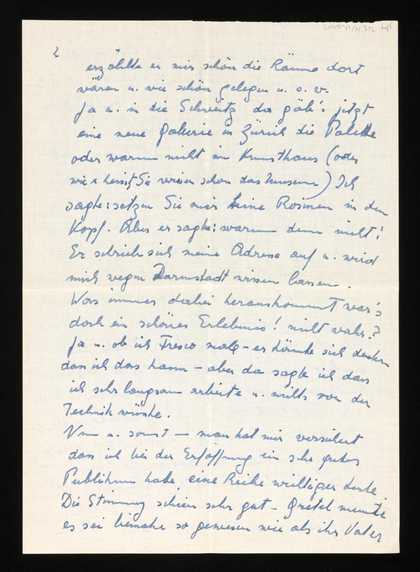 2
erzählte er mir schön die Räume dort
wären u. wie schön gelegen u. s. v.
Ja u. in die Schweitz da gäb's jetzt
eine neue Galerie in Zürich die Palette
oder warum nicht im Kunsthaus (oder
wie heisst Sie wissen schon das Museum) Ich
sagte: setzen Sie mir keine Rosinen in den
Kopf. Aber er sagte: warum denn nicht!
Er schrieb sich meine Adresse auf u. wird
mich wegen Darmstadt wissen lassen.
Was immer dabei herauskommt war's
doch ein schönes Erlebnis! nicht wahr?
Ja u. ob ich Fresco male – er könnte sich denken
dass ich das kann – aber da sagte ich dass
ich sehr langsam arbeite u. nichts von der
Technik wüsste.
Nun u. sonst – man hat mir versichert
dass ich bei der Eröffnung ein sehr gutes
Publikum habe, eine Reihe wichtiger Leute
Die Stimmung schien sehr gut – Gretel meinte
es sei beinahe so gewesen wie als ihr Vater